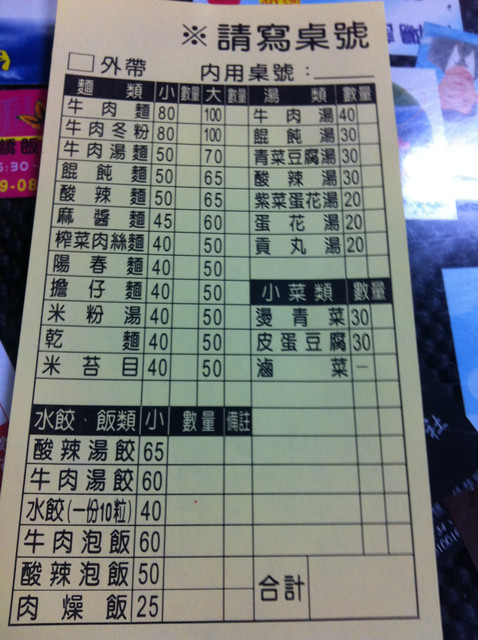 ※請寫桌號
外帶 內用桌號：
麵類 小 數量 大 數量
牛肉麵 80 100
牛肉冬粉 80 100
牛肉湯麵 50 70
餛飩麵 50 65
酸辣麵 50 65
麻醬麵 45 60
榨菜肉絲麵 40 50
陽春麵 40 50
擔仔麵 40 50
米粉湯 40 50
乾麵 40 50
米苔目 40 50
湯類 數量
牛肉湯 40
餛飩湯 30
青菜豆腐湯 30
酸辣湯 30
紫菜蛋花湯 20
蛋花湯 20
貢丸湯 20
小菜類 數量
燙青菜 30
皮蛋豆腐 30
滷菜 —
水餃、飯類 小 數量 備註
酸辣湯餃 65
牛肉湯餃 60
水餃(一份10粒) 40
牛肉泡飯 60
酸辣泡飯 50
肉燥飯 25
合計